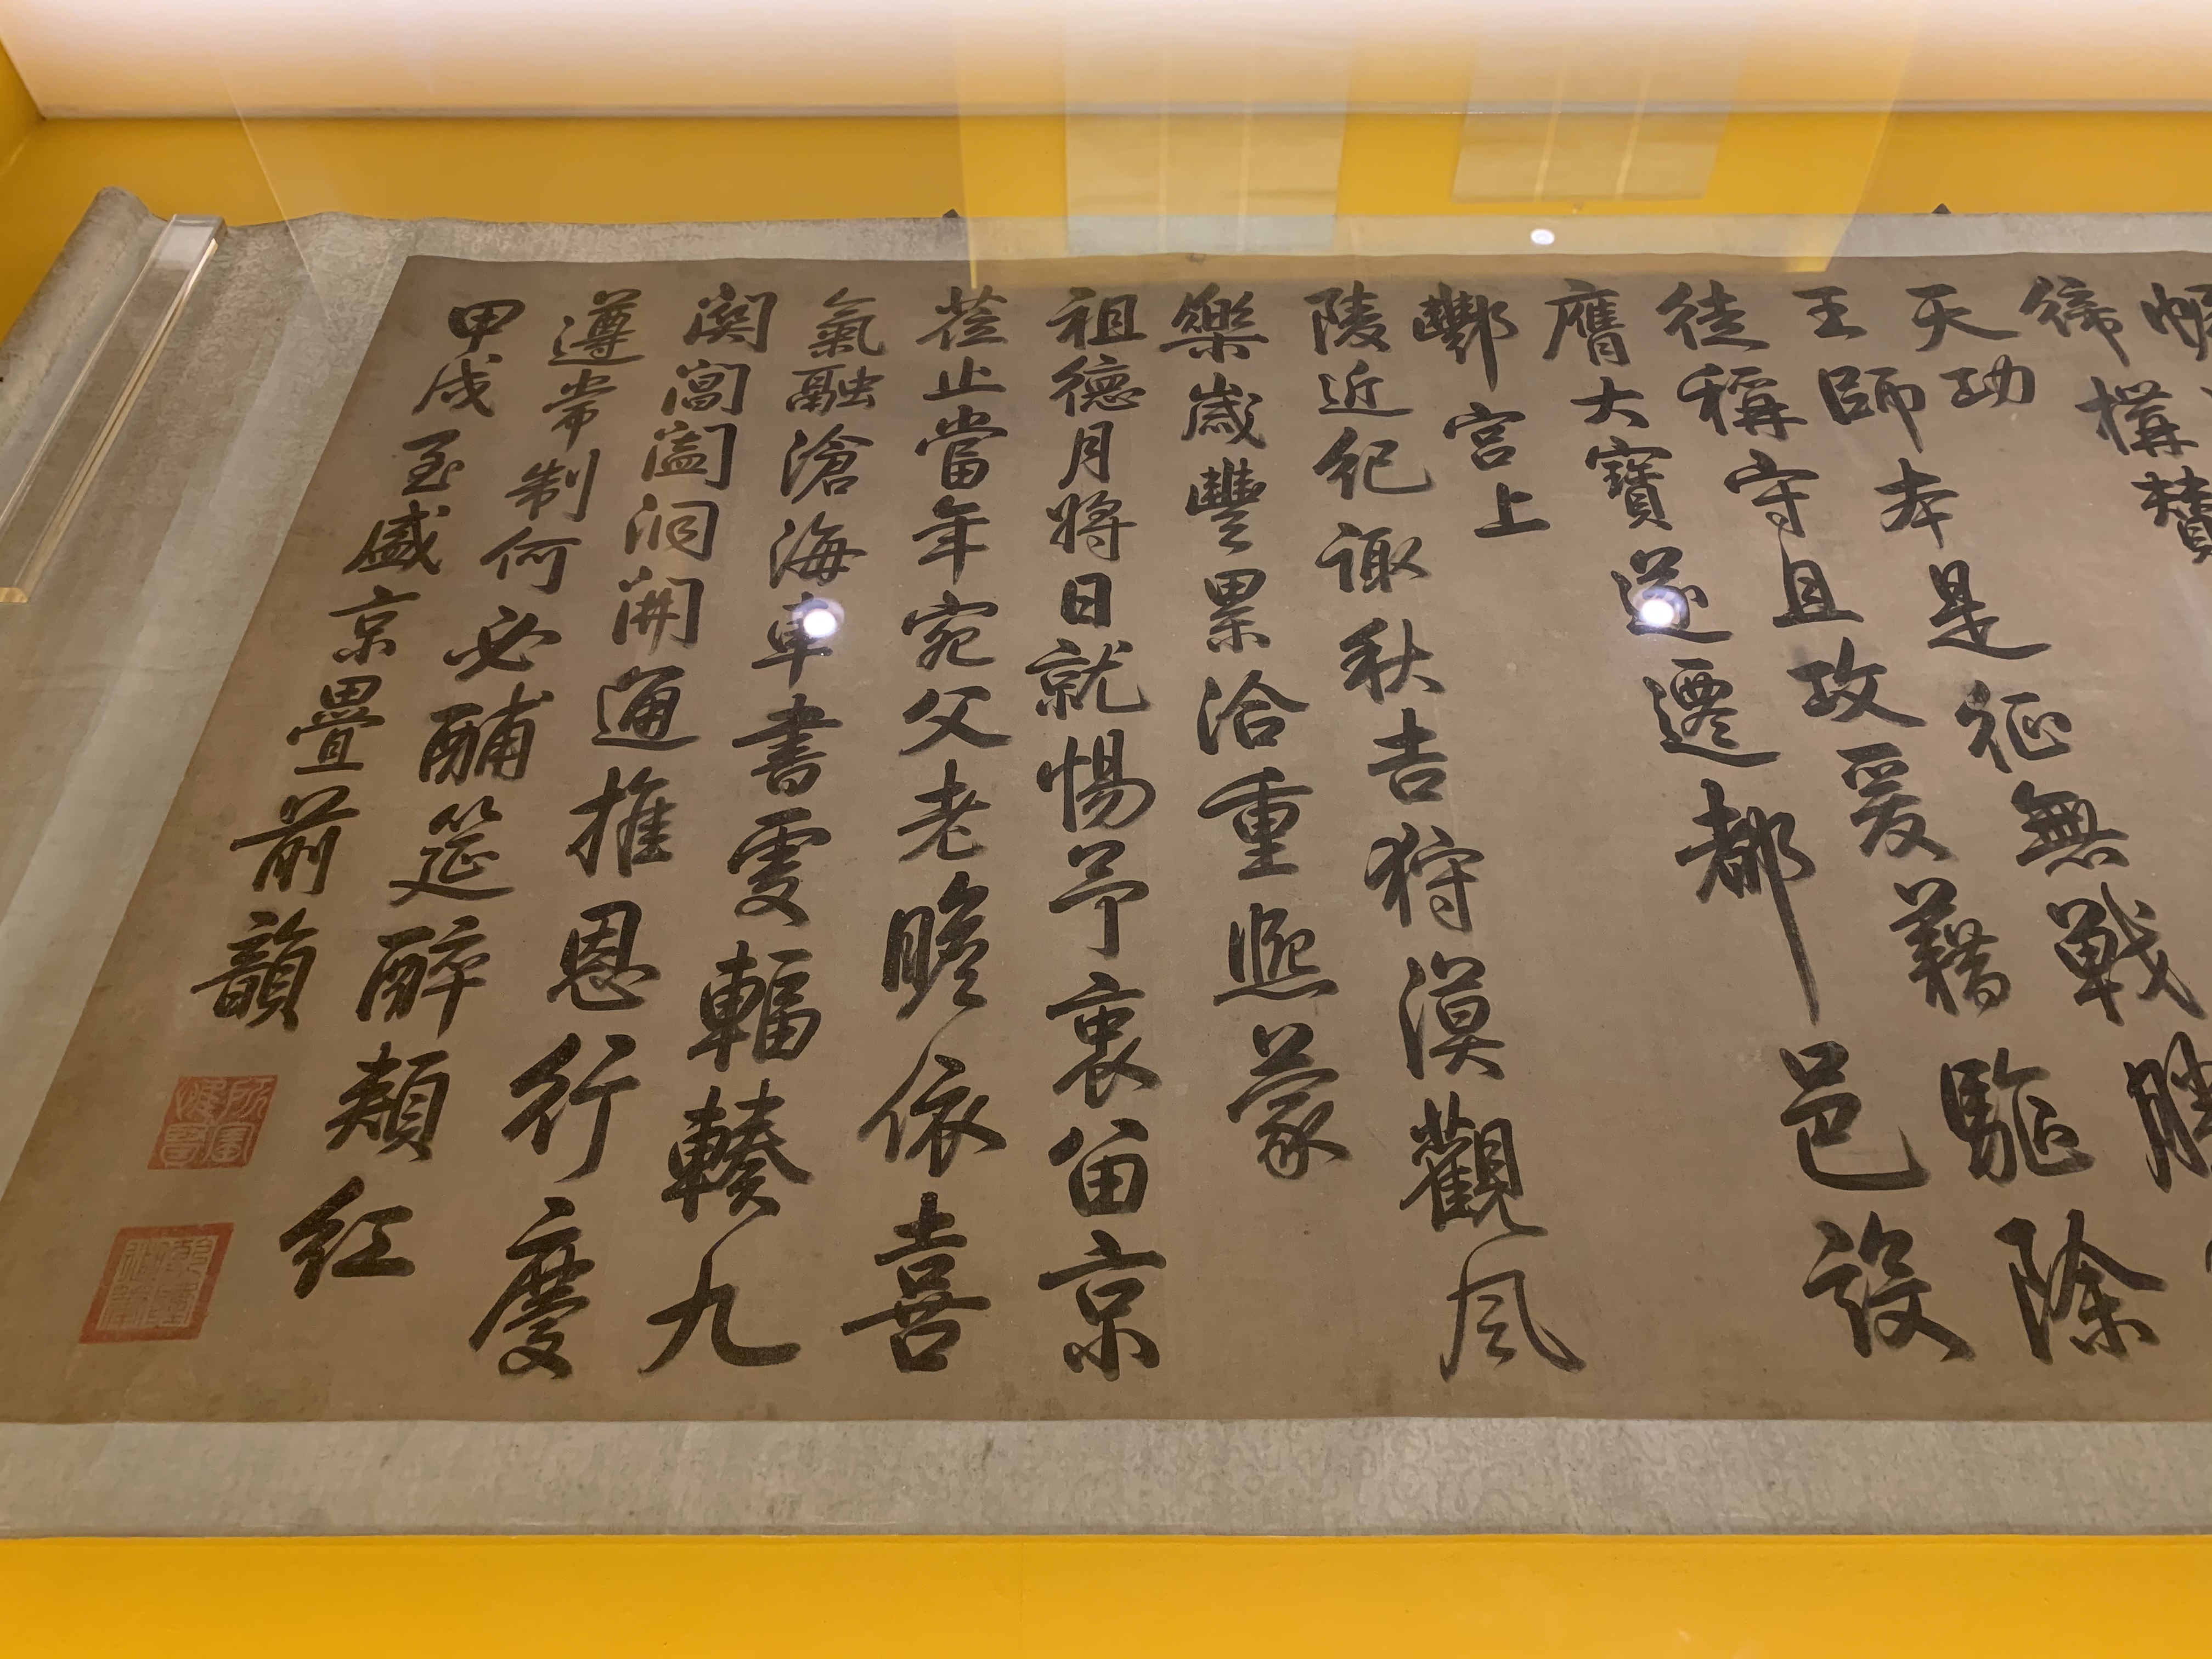 締構贊
天功
王師本是征無戰勝
徒稱守且攻爰藉驅除
膺大寶遂遷都邑設
酆宮上
陵近紀諏秋吉狩漠觀風
樂歲豐累洽重熙蒙
祖德月將日就惕予衷留京
蒞止當年宛父老瞻依喜
氣融滄海車書處輻輳九
闕閶闔洞開通推恩行慶
遵常制何必酺筵醉頰紅
甲戌至盛京疊前韻
所寶惟賢
乾隆御筆